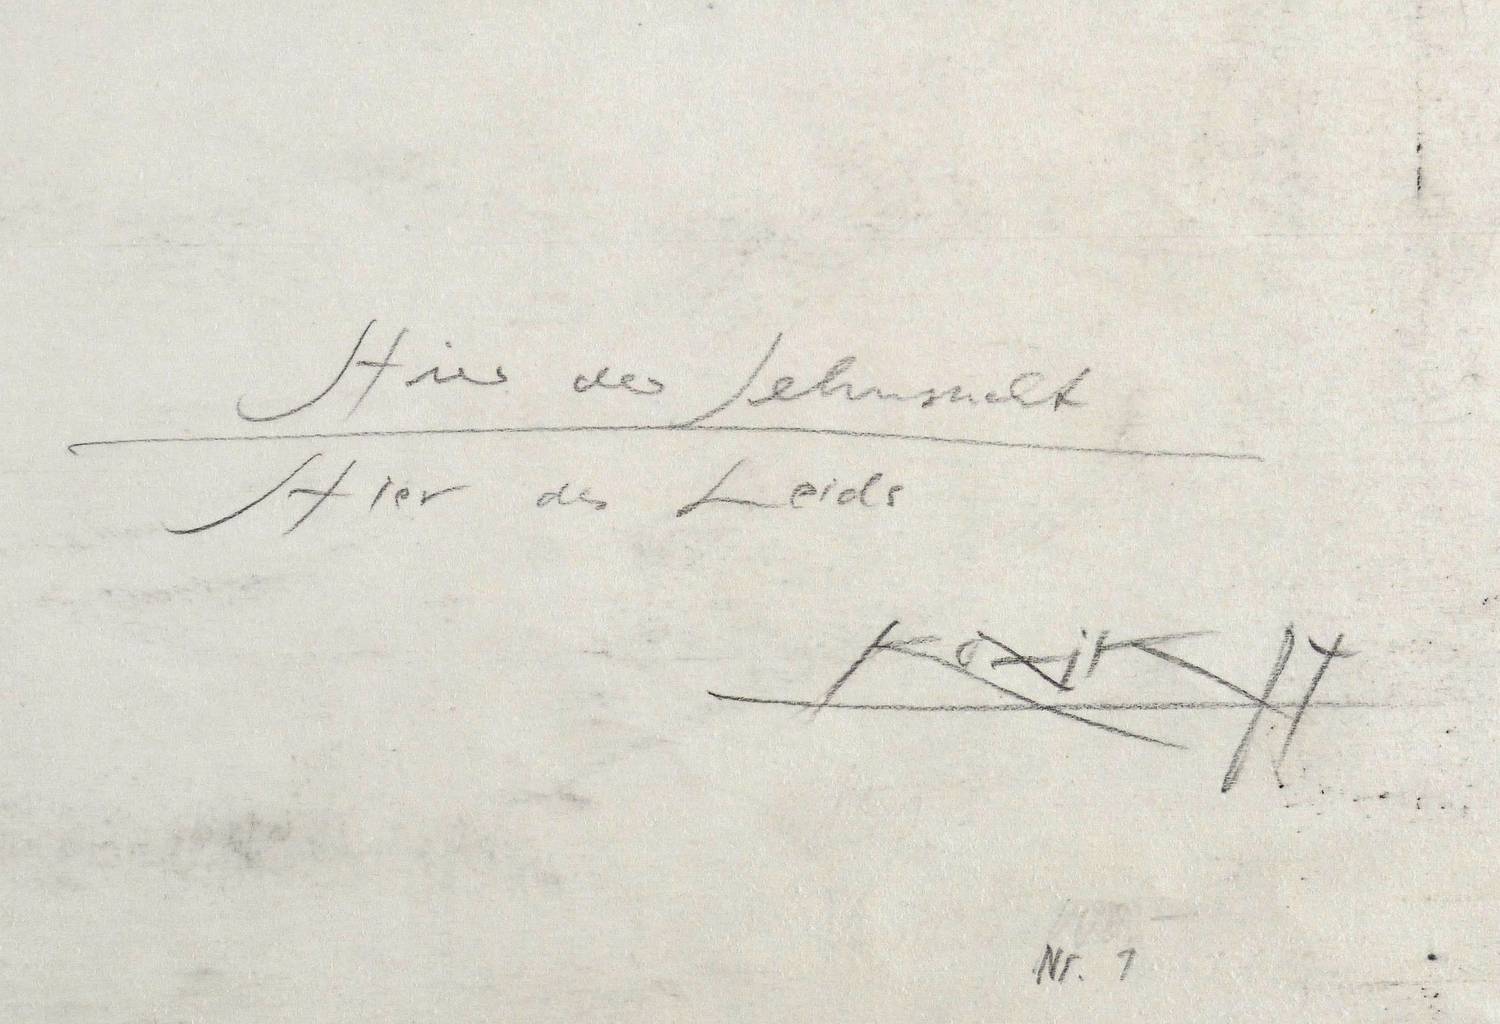 Hier der Sehnsucht
Hier des Leids
Kozik 94
Nr. 1